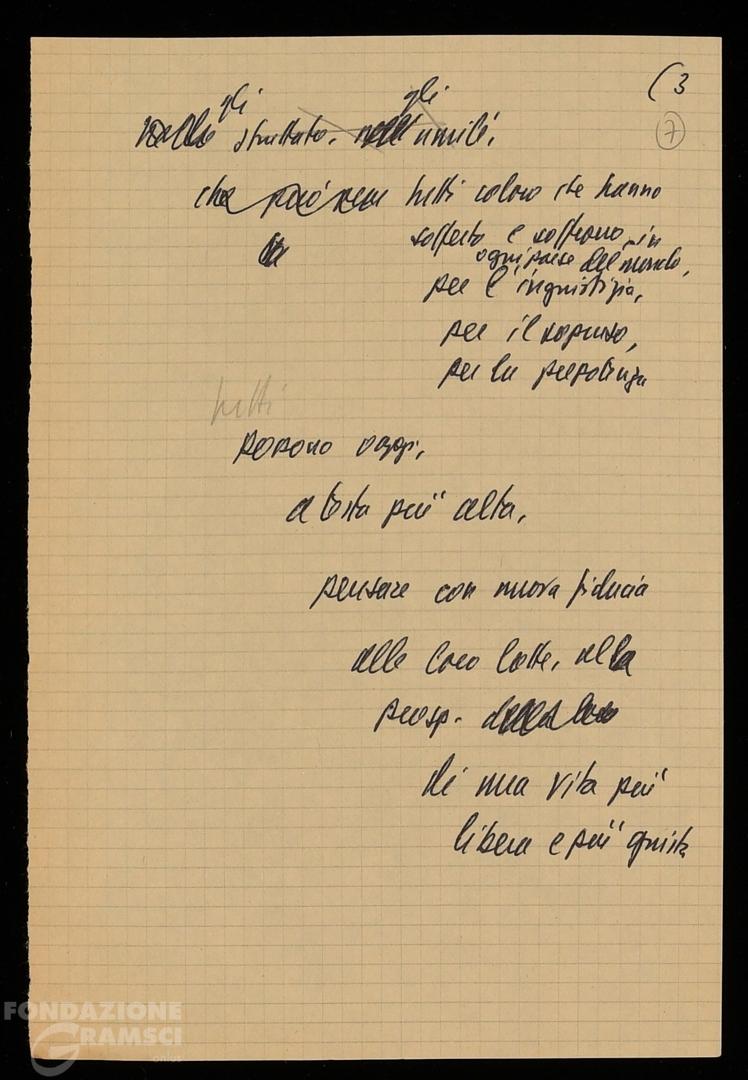 (3
7
gli gli
sfruttato, umili,
che tutti coloro che hanno
sofferto e soffrono, in
ogni paese del mondo,
per l'ingiustizia,
per il sopruso,
per la prepotenza
tutti
possono oggi,
a testa più alta,
pensare con nuova fiducia
alle loro lotte, alla
prosp.
di una vita più
libera e più giusta
FONDAZIONE
GRAMSCI
onlus